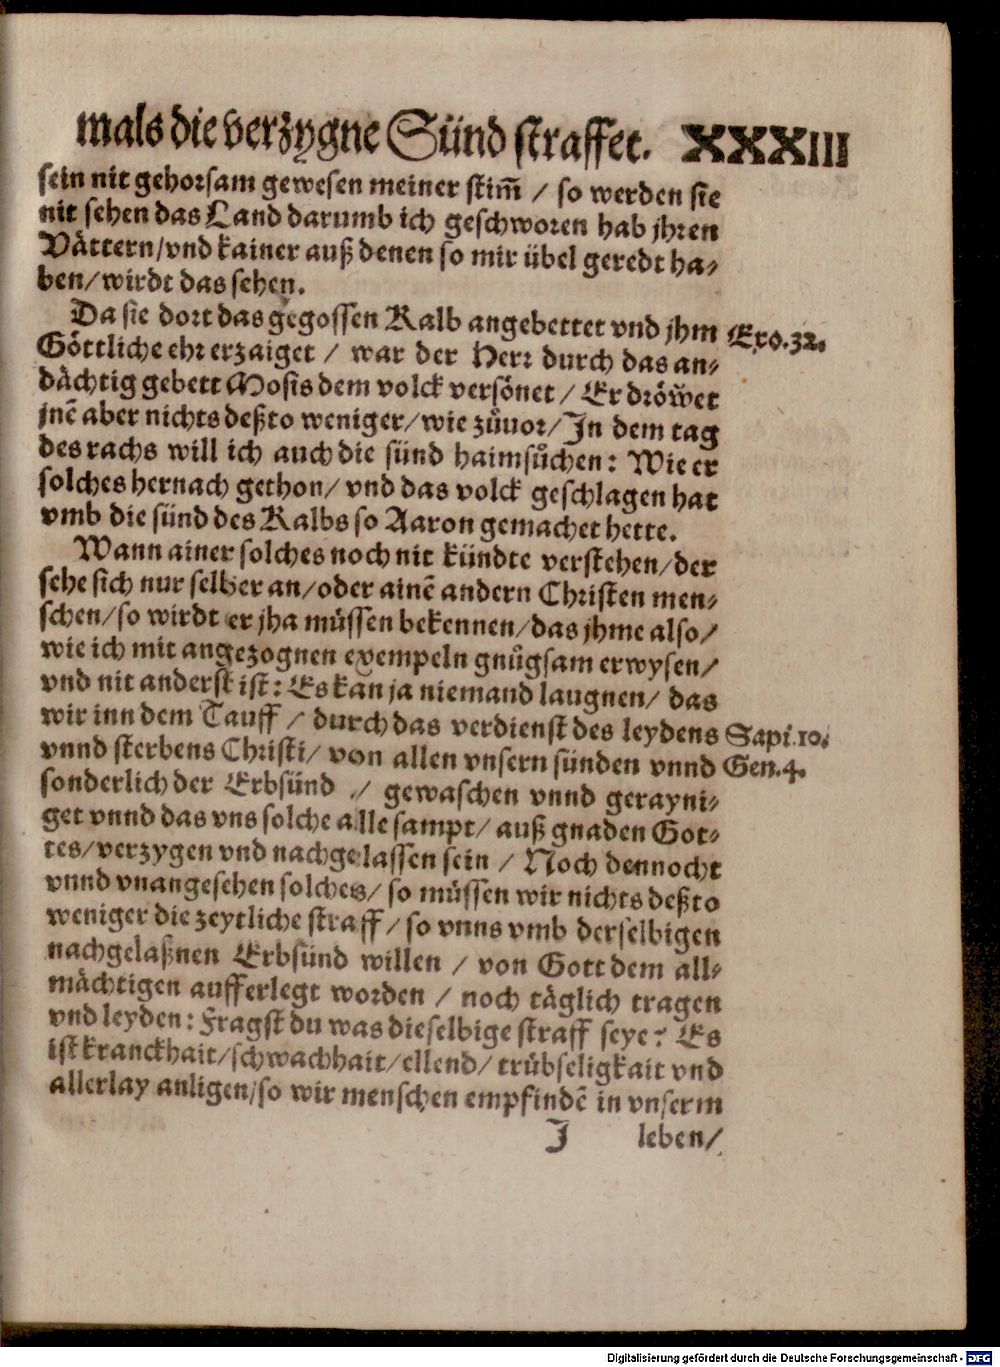 mals die verzygne Sünd straffet. XXXIII
sein nit gehorsam gewesen meiner stim̃ / so werden sie
nit sehen das Land darumb ich geschworen hab jhren
Vättern/vnd kainer auß denen so mir übel geredt ha⸗
ben/wirdt das sehen.
Da sie dort das gegossen Kalb angebettet vnd jhm
Exo.32.
Göttliche ehr erzaiget / war der Herr durch das an⸗
dächtig gebett Mosis dem volck versönet / Er dröwet
jnẽ aber nichts deßto weniger/wie zůuor/In dem tag
des rachs will ich auch die sünd haimsůchen: Wie er
solches hernach gethon/ vnd das volck geschlagen hat
vmb die sünd des Kalbs so Aaron gemachet hette.
Wann ainer solches noch nit kündte verstehen/der
sehe sich nur selber an/oder ainẽ andern Christen men⸗
schen/so wirdt er jha müssen bekennen/das jhme also/
wie ich mit angezognen exempeln gnůgsam erwysen/
vnd nit anderst ist: Es kan ja niemand laugnen/ das
wir inn dem Tauff / durch das verdienst des leydens
Sapi.10.
vnnd sterbens Christi/ von allen vnsern sünden vnnd
Gen.4.
sonderlich der Erbsünd / gewaschen vnnd gerayni⸗
get vnnd das vns solche alle sampt/ auß gnaden Got⸗
tes/verzygen vnd nachgelassen sein / Noch dennocht
vnnd vnangesehen solches/ so müssen wir nichts deßto
weniger die zeytliche straff/ so vnns vmb derselbigen
nachgelaßnen Erbsünd willen / von Gott dem all⸗
mächtigen aufferlegt worden / noch täglich tragen
vnd leyden: Fragst du was dieselbige straff seye? Es
ist kranckhait/schwachhait/ellend/ trübseligkait vnd
allerlay anligen/so wir menschen empfindẽ in vnserm
J leben/
Digitalisierung gefördert durch die Deutsche Forschungsgemeinschaft - DFG